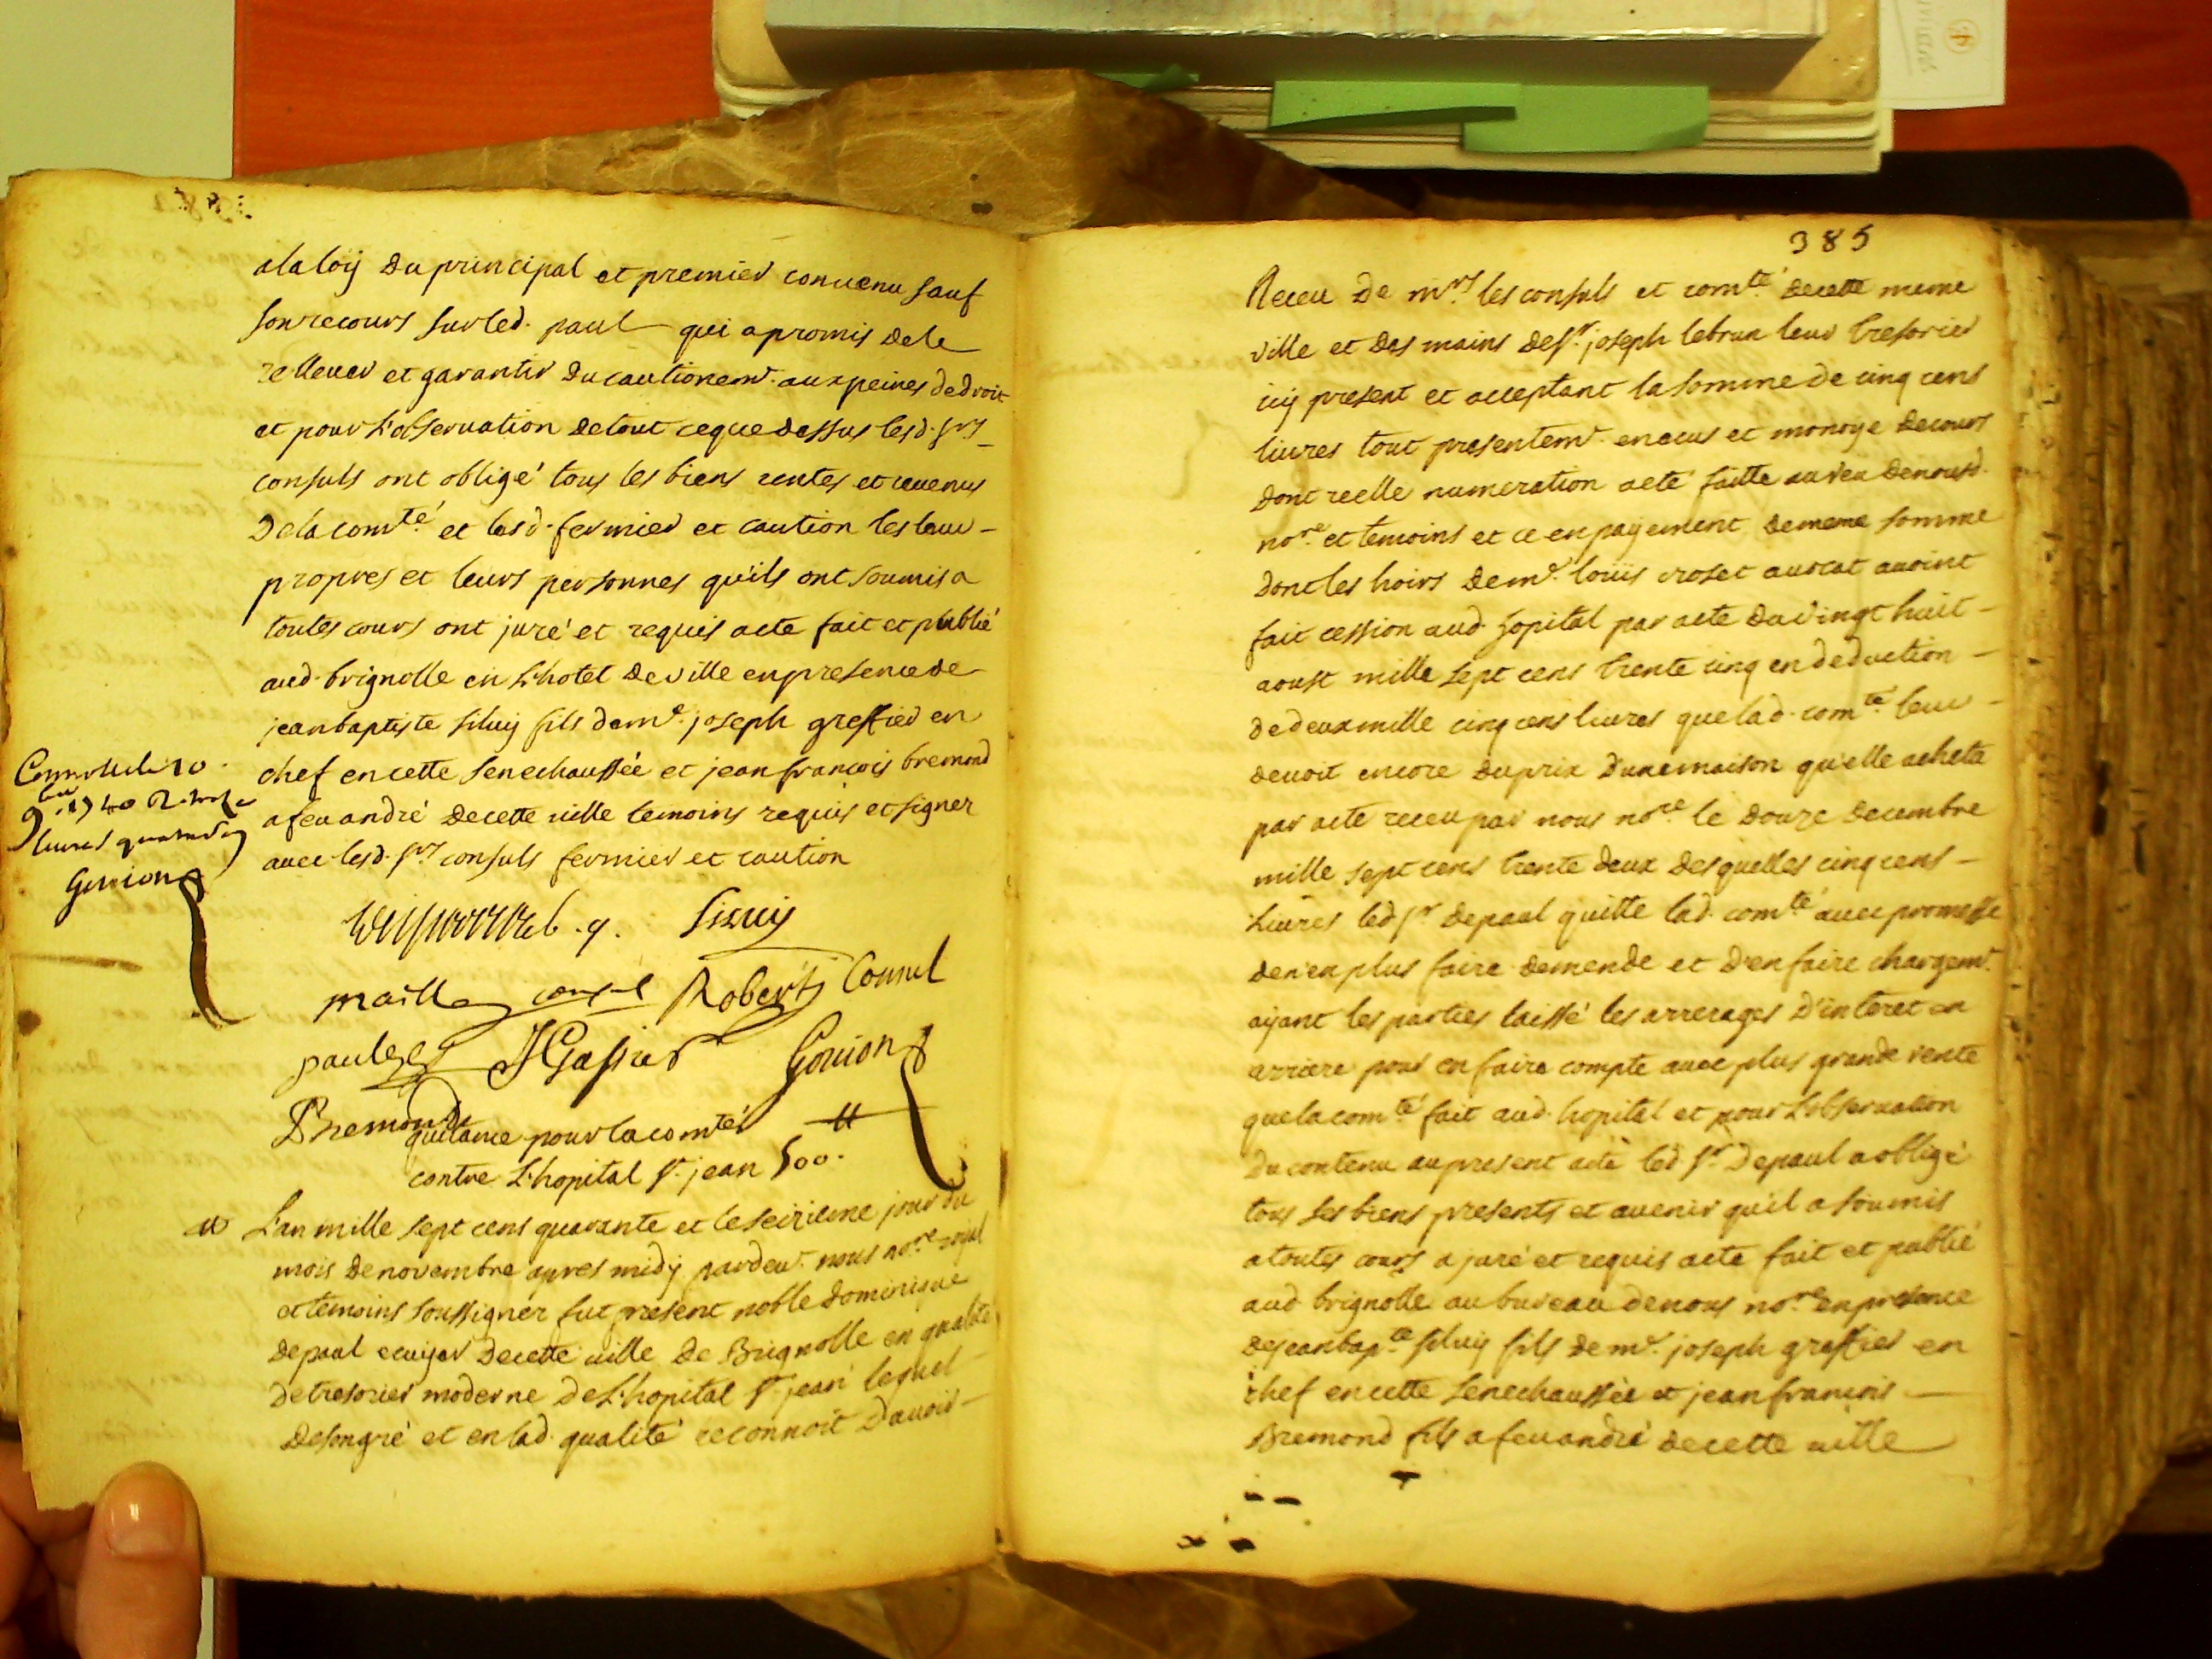 a la loy du principal et premier convenu sauf
son recours sur led. paul qui a promis de le
rellever et garantir du cautionemt. aux peines de droit
et pour l'observation de tout ce que dessus lesd. srs
consuls ont obligé tous les biens rentes et revenus
de la comté et lesd. fermier et caution les leur
propres et leurs personnes qu'ils ont soumis a
toutes cours ont juré et requis acte fait et publié
aud. brignolle en l'hotel de ville en presence de
jean baptiste siluy fils de me. joseph greffier en
chef en cette senechaussée et jean francois bremond
a feu andré de cette ville temoins requis et signer
avec lesd. srs consuls fermier et caution
Siluy
maille consul Robert Consul
paul JGassier Gouion
Bremond
quitance pour la comté
contre l'hopital st. jean 500.
L'an mille sept cens quarante et le seizieme jour du
mois de novembre apres midy pardevt. nous nore royal
et temoins soussigner fut present noble dominique
depaul ecuyer de cette ville de Brignolle en qualité
de tresorier moderne de l'hopital st. jean lequel
de son gré et en lad. qualité reconnoit d'avoir
livres quatre
Gouion
385
Receu de mrs les consuls et comté de cette meme
ville et des mains de sr. joseph lebrun leur tresorier
icy present et acceptant la somme de cinq cens
livres tout presentemt. en ecus et monoye de cours
dont reelle numeration a eté faitte au veu de nousd.
nore et temoins et ce en payement de meme somme
dont les hoirs de me. louis croset avocat avoint
fait cession aud. hopital par acte du vingt huit
aoust mille sept cens trente cinq en deduction
de deux mille cinq cens livres que lad. comté leur
devoit encore du prix d'une maison qu'elle acheta
par acte receu par nous nore le douze decembre
mille sept cens trente deux desquelles cinq cens
livres led. sr depaul quitte lad. comté avec promesse
de n'en plus faire demende et d'en faire chargemt.
ayant les parties laissé les arrerages d'interet en
arriere pour en faire compte avec plus grande rente
que la comté fait aud. hopital et pour l'observation
du contenu au present acte led. sr. Depaul a obligé
tous ses biens presents et avenir qu'il a soumis
a toutes cours a juré et requis acte fait et publié
aud. brignolle au bureau de nous nore en presence
de jean bapte. siluy fils de me. joseph greffier en
chef en cette senechaussée et jean francois
Bremond fils a feu andré de cette ville